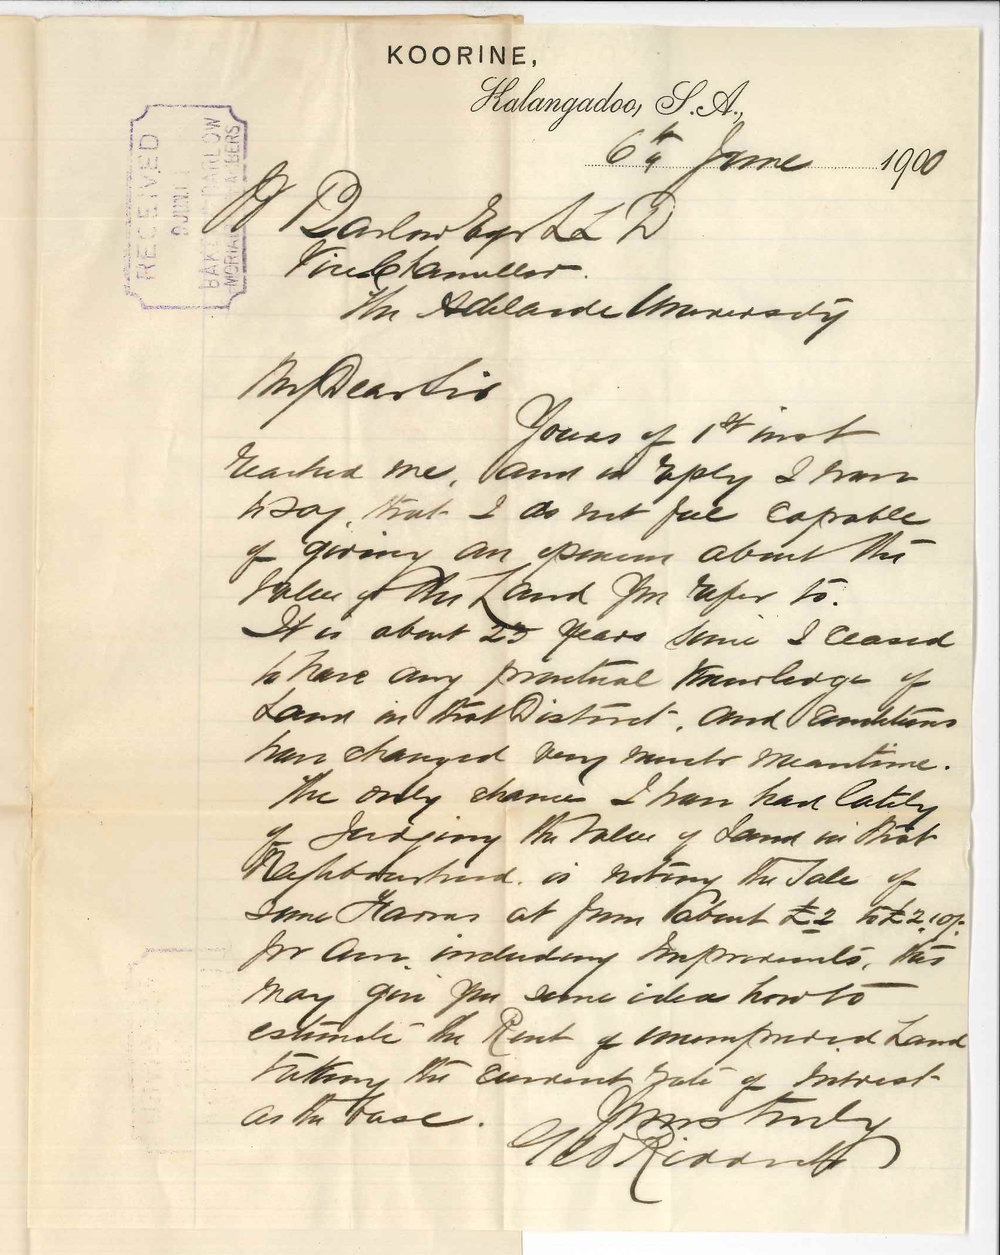 KOORINE,
Kalangadoo, S.A.,
6th June 1900
RECEIVED
9 JUN
BAKER & BARLOW
MORIALTA CHAMBERS
W Barlow Esqr L L D
Vice Chancellor.
The Adelaide University
My Dear Sir
Yours of 1st inst
reached me, and in reply I have
to say, that I do not feel capable
of giving an opinion about the
value of the Land you refer to.
It is about 25 years since I ceased
to have any practical knowledge of
Land in that District, and conditions
have changed very much meantime.
The only chance I have had lately
of Judging the value of Land in that
Neighbourhood. is noting the Sale of
some Farms at from about £2 to £2.10/-
per acre, including Improvements, this
may give you some idea how to
estimate the Rent of unimproved Land
taking the current rate of Interest
as the base.
Yours truly
Geo Riddoch